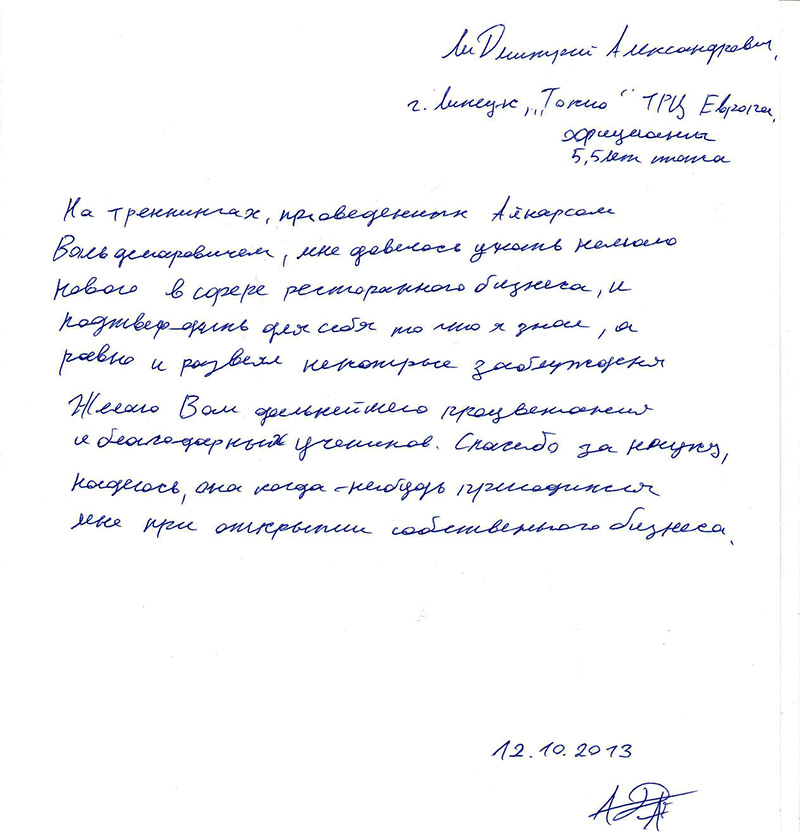 Ли Дмитрий Александрович,
г. Липецк, "Токио" ТРЦ Европа,
официант
5,5 лет стажа
На треннингах, проведенных Айнарсом
Вальдемаровичем, мне довелось узнать немало
нового в сфере ресторанного бизнеса, и
подтвер-дить для себя то что я знал, а
равно и развеял некоторые заблуждения
Желаю Вам дальнейшего процветания
и благодарных учеников. Спасибо за науку,
надеюсь, она когда-нибудь пригодится
мне при открытии собственного бизнеса.
12.10.2013